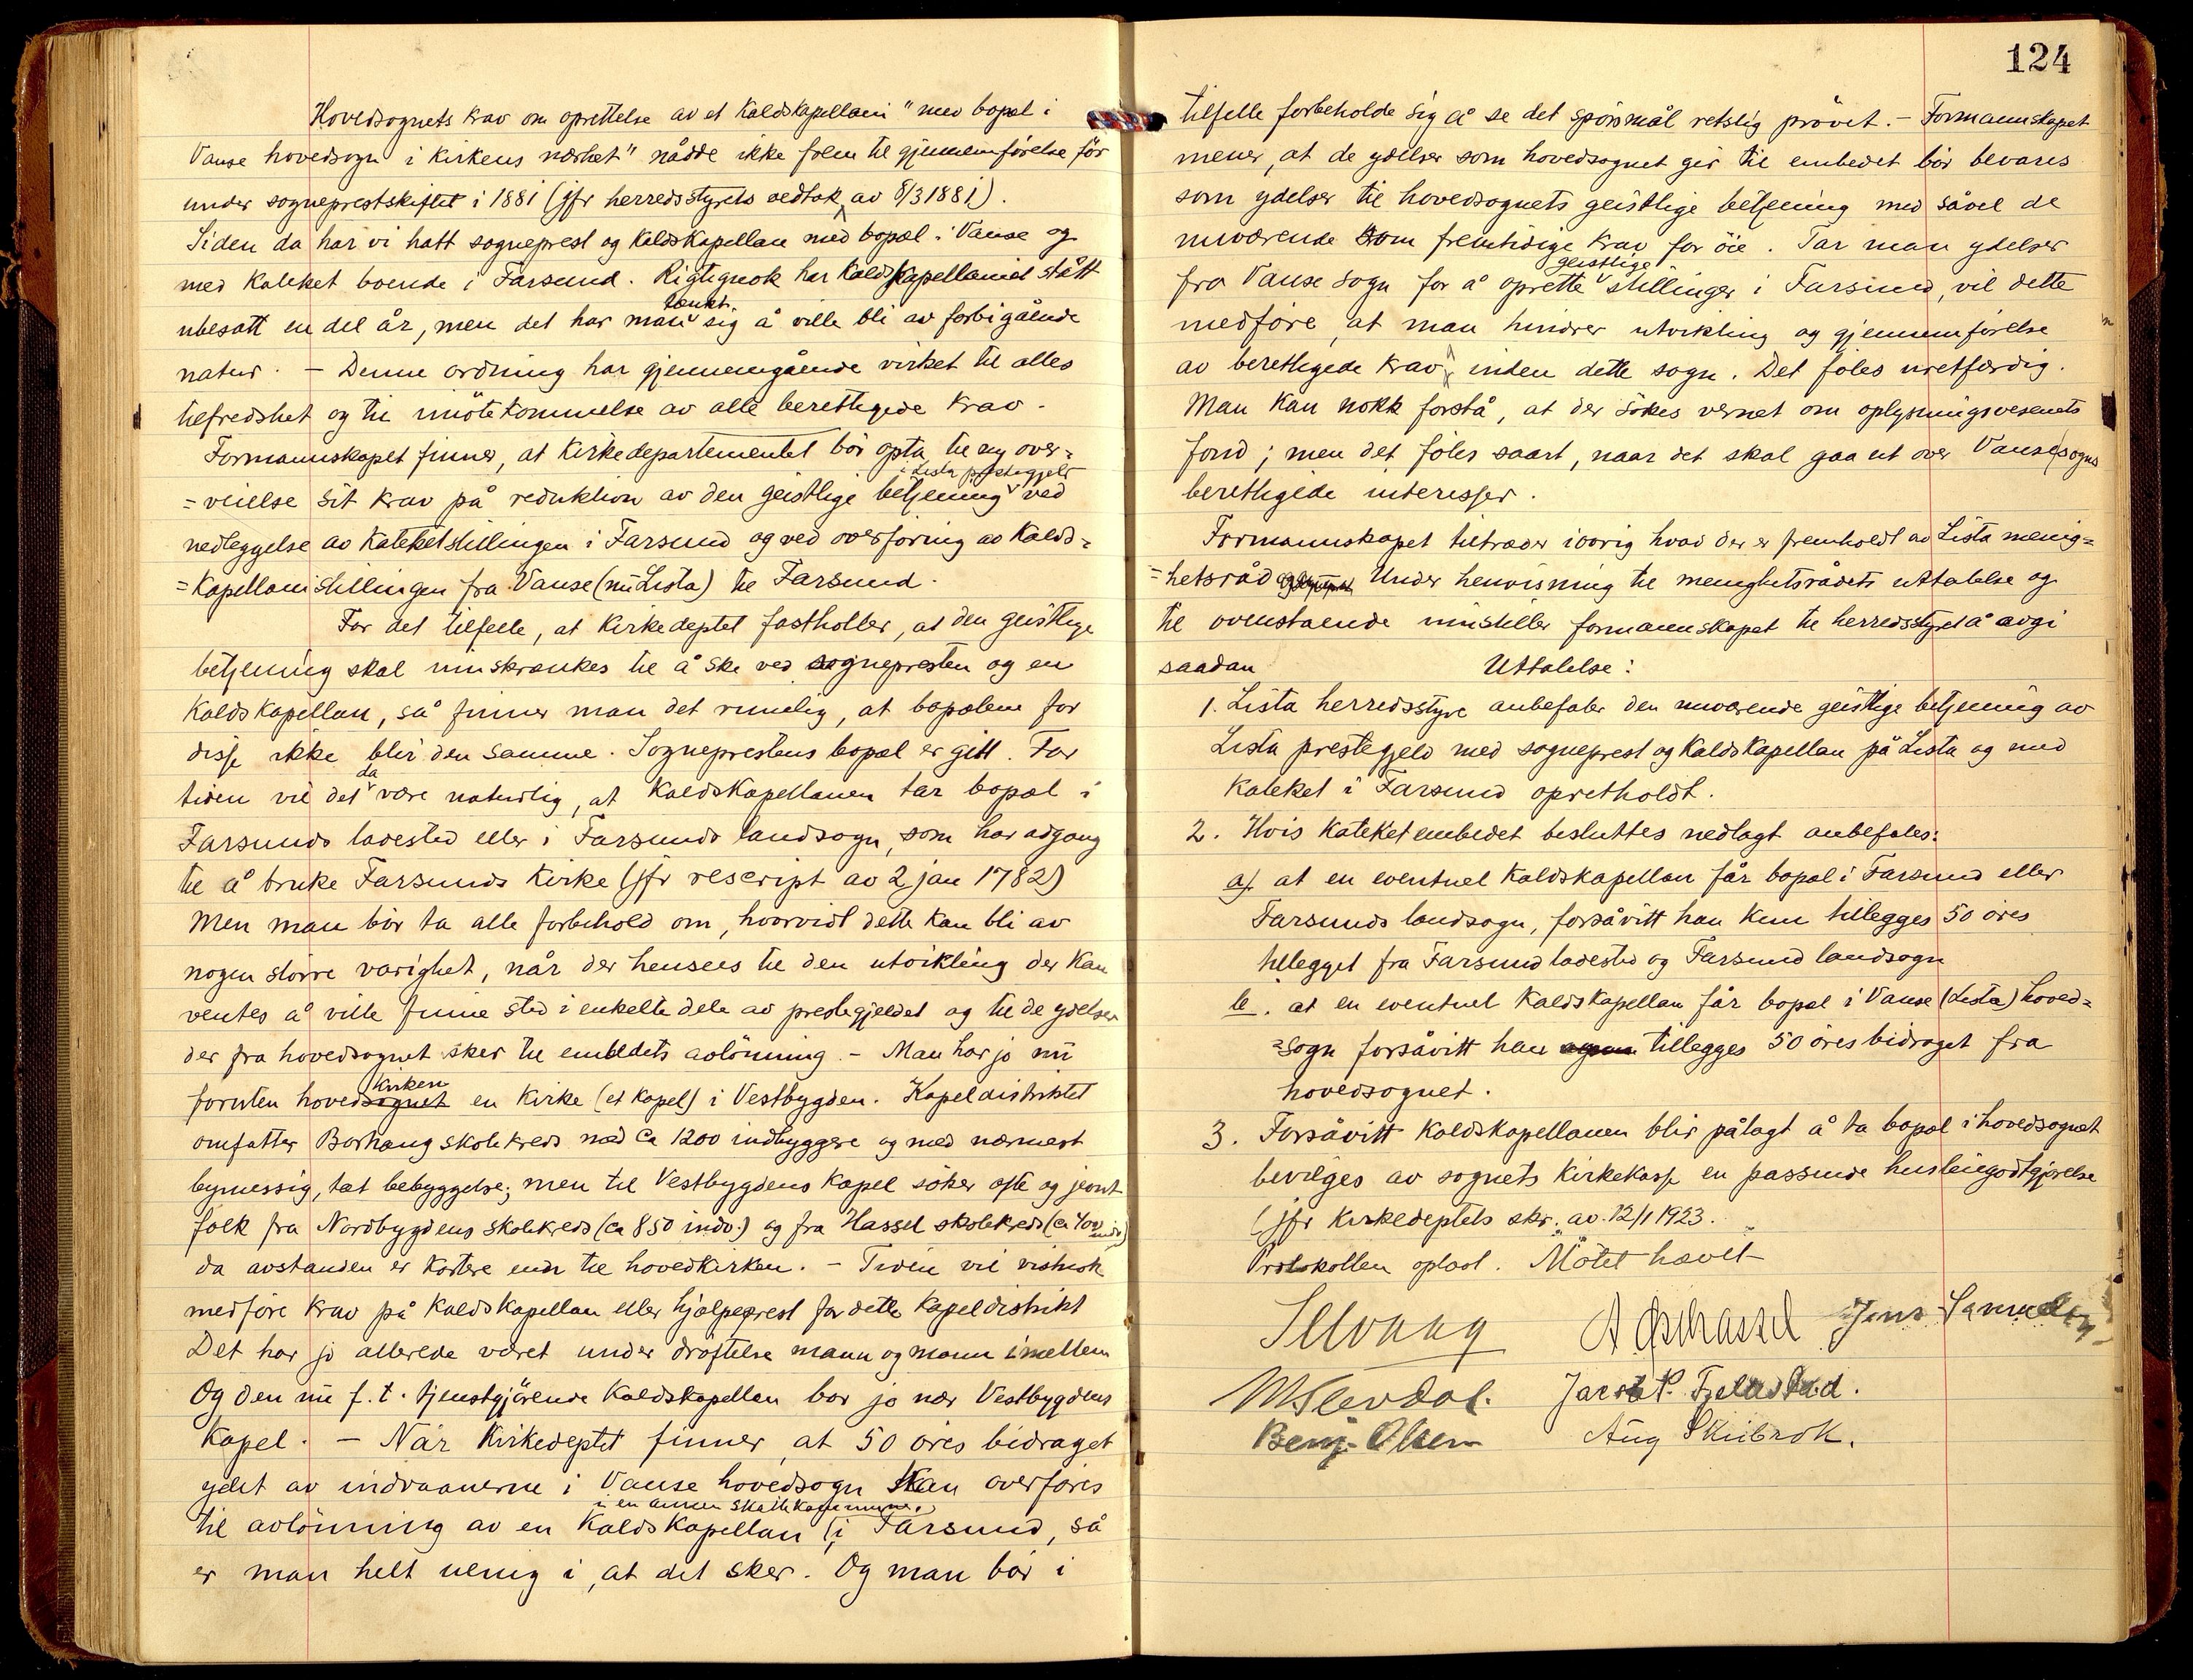 Hovedsognets krav om oprettelse av et kaldskapellani "med bopæl i
Vanse hovedsogn i kirkens nærhet" nådde ikke frem til gjennemførelse før
under sogneprestskiftet i 1881 (jfr herredsstyrets vedtak av 8/3 1881).
Siden da har vi hatt sogneprest og kaldskapellan med bopæl i Vanse og
med kateket boende i Farsund. Rigtignok har kaldskapellaniet stått
ubesatt en del år, men det har man tænkt sig å ville bli av forbigående
natur. – Denne ordning har gjennemgående virket til alles
tilfredshet og til imøtekommelse av alle berettigede krav.
Formannskapet finner, at Kirkedepartementet bør opta til ny over=
=veielse sit krav på reduktion av den geistlige betjening i Lista prestegjeld ved
nedleggelse av kateketstillingen i Farsund og ved overføring av kalds=
=kapellanistillingen fra Vanse (nu Lista) til Farsund.
For det tilfelle, at Kirkedeptet fastholder, at den geistlige
betjening skal innskrænkes til å ske ved sognepresten og en
kaldskapellan, så finner man det rimelig, at bopælene for
disse ikke blir den samme. Sogneprestens bopæl er gitt. For
tiden vil det da være naturlig, at kaldskapellanen tar bopæl i
Farsunds ladested eller i Farsunds landsogn, som har adgang
til å bruke Farsunds kirke (jfr rescript av 2 jan 1782)
Men man bør ta alle forbehold om, hvorvidt dette kan bli av
nogen større varighet, når der hensees til den utvikling der kan
ventes å ville finne sted i enkelte dele av prestegjeldet og til de ydelser
der fra hovedsognet sker til embedets avlønning. – Man har jo nu
foruten hovedsognet kirken en kirke (et kapel) i Vestbygden. Kapeldistriktet
omfatter Borhaug skolekreds med ca 1200 indbyggere og med nærmest
bymessig, tæt bebyggelse; men til Vestbygdens kapel søker ofte og jevnt
folk fra Nordbygdens skolekreds (ca 850 indv.) og fra Hassel skolekreds (ca 400 indv)
da avstanden er kortere enn til hovedkirken. – Tiden vil vistnok
medføre krav på kaldskapellan eller hjælpeprest for dette kapeldistrikt
Det har jo allerede været under drøftelse mann og mann imellem
Og den nu f.t. tjenstgjørende kaldskapellan bor jo nær Vestbygdens
kapel. – Når Kirkedeptet finner, at 50 øres bidraget
ydet av indvaanerne i Vanse hovedsogn kan overføres
til avlønning av en kaldskapellan i en annen skattekommune, (i Farsund, så
er man helt uenig i, at det sker. Og man bør i
124
tilfelle forbeholde sig å se det spørsmål retslig prøvet. – Formannskapet
mener, at de ydelser som hovedsognet gir til embedet bør bevares
som ydelser til hovedsognets geistlige betjening med såvel de
nuværende som fremtidige krav for øie. Tar man ydelser
fra Vanse sogn for å oprette geistlige stillinger i Farsund, vil dette
medføre, at man hindrer utvikling og gjennemførelse
av berettigede krav inden dette sogn. Det føles uretfærdig.
Man kan nokk forstå, at der søkes vernet om oplysningsvesenets
fond; men det føles saart, naar det skal gaa ut over Vanse sogns
berettigede interesser.
Formannskapet tiltræder iøvrig hvad der er fremholdt av Lista menig=
=hetsråd Under henvisning til menighetsrådets uttalelse og
til ovenstaende innstiller formannskapet til herredsstyret å avgi
saadan Uttalelse:
1. Lista herredsstyre anbefaler den nuværende geistlige betjening av
Lista prestegjeld med sogneprest og kaldskapellan på Lista og med
kateket i Farsund opretholdt.
2. Hvis kateketembedet besluttes nedlagt anbefales:
a). at en eventuel kaldskapellan får bopæl i Farsund eller
Farsunds landsogn, forsåvitt han kun tillegges 50 øres
tillegget fra Farsund ladested og Farsund landsogn
b. at en eventuel kaldskapellan får bopæl i Vanse (Lista) hoved=
=sogn forsåvitt han tillegges 50 øres bidraget fra
hovedsognet.
3. Forsåvitt kaldskapellanen blir pålagt å ta bopæl i hovedsognet
bevilges av sognets kirkekasse en passende husleiegodtgjørelse
(jfr Kirkedeptets skr. av 12/1 1923.
Protokollen oplæst. Møtet hævet
Jens Samuelsen
Benj. Olsen Aug Skeibrok.